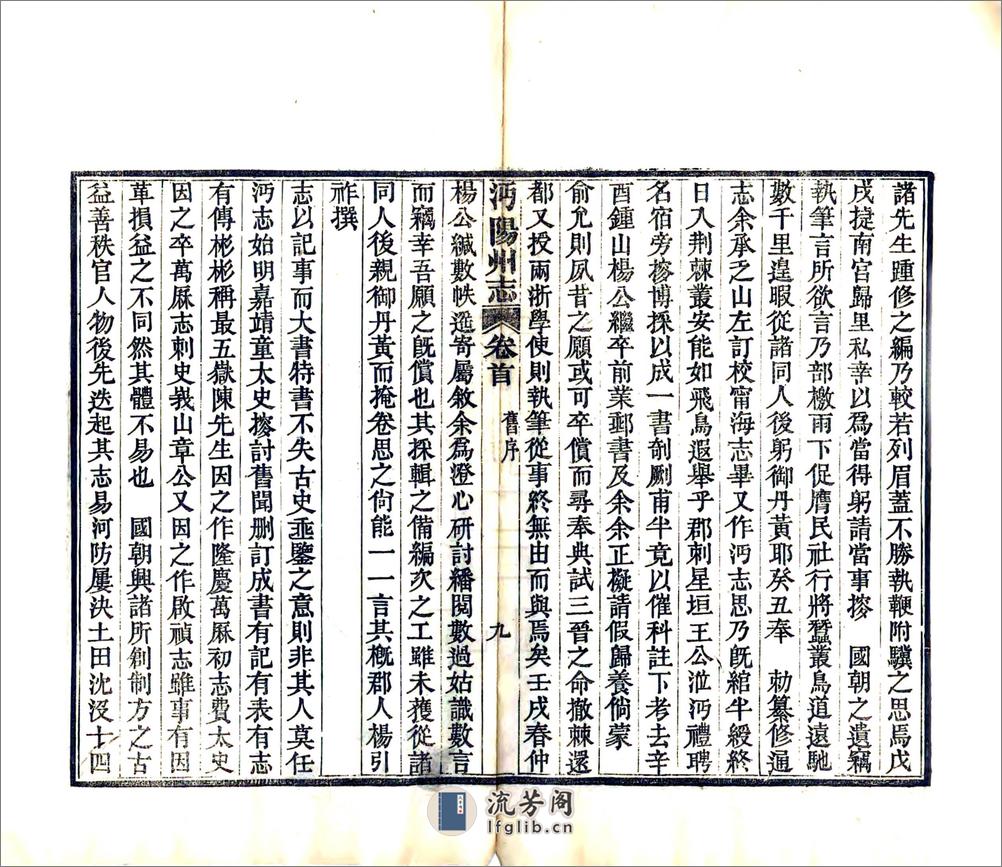 諸先生踵修之編乃較若列眉蓋不勝執鞭附驥之思焉戊
戌捷南宮歸里私幸以爲當得躬請當事搜　國朝之遺竊
執筆言所欲言乃部檄雨下促膺民社行將蠶叢鳥道遠馳
數千里遑暇從諸同人後躬御丹黃耶癸丑奉　勅纂修通
志余承乏山左訂校甯海志畢又作沔志思乃旣綰半綬終
日入荆棘叢安能如飛鳥遐舉乎郡刺星垣王公涖沔禮聘
名宿旁搜博採以成一書剞劂甫半竟以催科註下考去辛
酉鍾山楊公繼卒前業郵書及余余正擬請假歸養倘蒙
俞允則夙昔之願或可卒償而尋奉典試三晉之命撤棘還
都又授兩浙學使則執筆從事終無由而與焉矣壬戌春仲
沔陽州志　卷首　舊序　九
楊公緘數帙遥寄屬敘余爲澄心研討繙閱數過姑識數言
而竊幸吾願之旣償也其採輯之備編次之工雖未獲從諸
同人後親御丹黃而掩卷思之尙能一一言其槪郡人楊引
祚撰
志以記事而大書特書不失古史垂鑒之意則非其人莫任
沔志始明嘉靖童太史搜討舊聞刪訂成書有記有表有志
有傳彬彬稱最五嶽陳先生因之作隆慶萬厤初志費太史
因之卒萬厤志刺史義山章公又因之作啟禎志雖事有因
革損益之不同然其體不易也　國朝興諸所創制方之古
益善秩官人物後先迭起其志易河防屢決土田沈沒十四
流芳阁
lfglib.cn